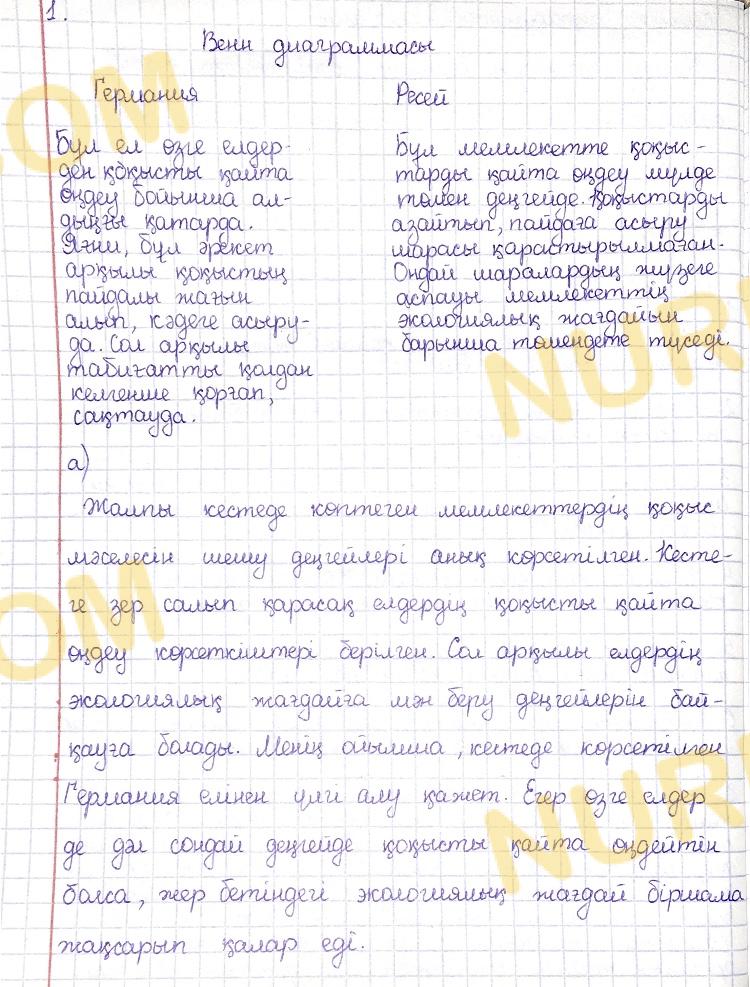 1.
Венн диаграммасы
Германия
Бұл ел өзге елдер-
ден қоқысты қайта
өңдеу бойынша ал-
дыңғы қатарда.
Яғни, бұл әрекет
арқылы қоқыстың
пайдалы жағын
алып, кәдеге асыру-
да. Сол арқылы
табиғатты қолдан
келгенше қорғап,
сақтауда.
Ресей
Бұл мемлекетте қоқыс-
тарды қайта өңдеу мүлде
төмен деңгейде. Қоқыстарды
азайтып, пайдаға асыру
шарасы қарастырылмаған.
Ондай шаралардың жүзеге
аспауы мемлекеттің
экологиялық жағдайын
барынша төмендете түседі.
а)
Жалпы кестеде көптеген мемлекеттердің қоқыс
мәселесін шешу деңгейлері анық көрсетілген. Кесте-
ге зер салып қарасақ елдердің қоқысты қайта
өңдеу көрсеткіштері берілген. Сол арқылы елдердің
экологиялық жағдайға мән беру деңгейлерін бай-
қауға болады. Менің ойымша, кестеде көрсетілген
Германия елінен үлгі алу қажет. Егер өзге елдер
де дәл сондай деңгейде қоқысты қайта өңдейтін
болса, жер бетіндегі экологиялық жағдай біршама
жақсарып қалар еді.
COM
NUR
COM
NUR